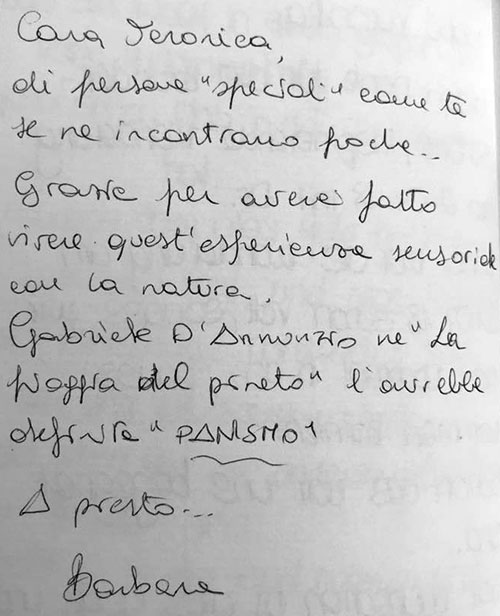 Cara Veronica,
di persone "speciali" come te
se ne incontrano poche..
Grazie per averci fatto
vivere quest'esperienza sensoriale
con la natura.
Gabriele D'Annunzio ne "La
pioggia del pineto" l'avrebbe
definita "PANISMO"
A presto...
Barbara